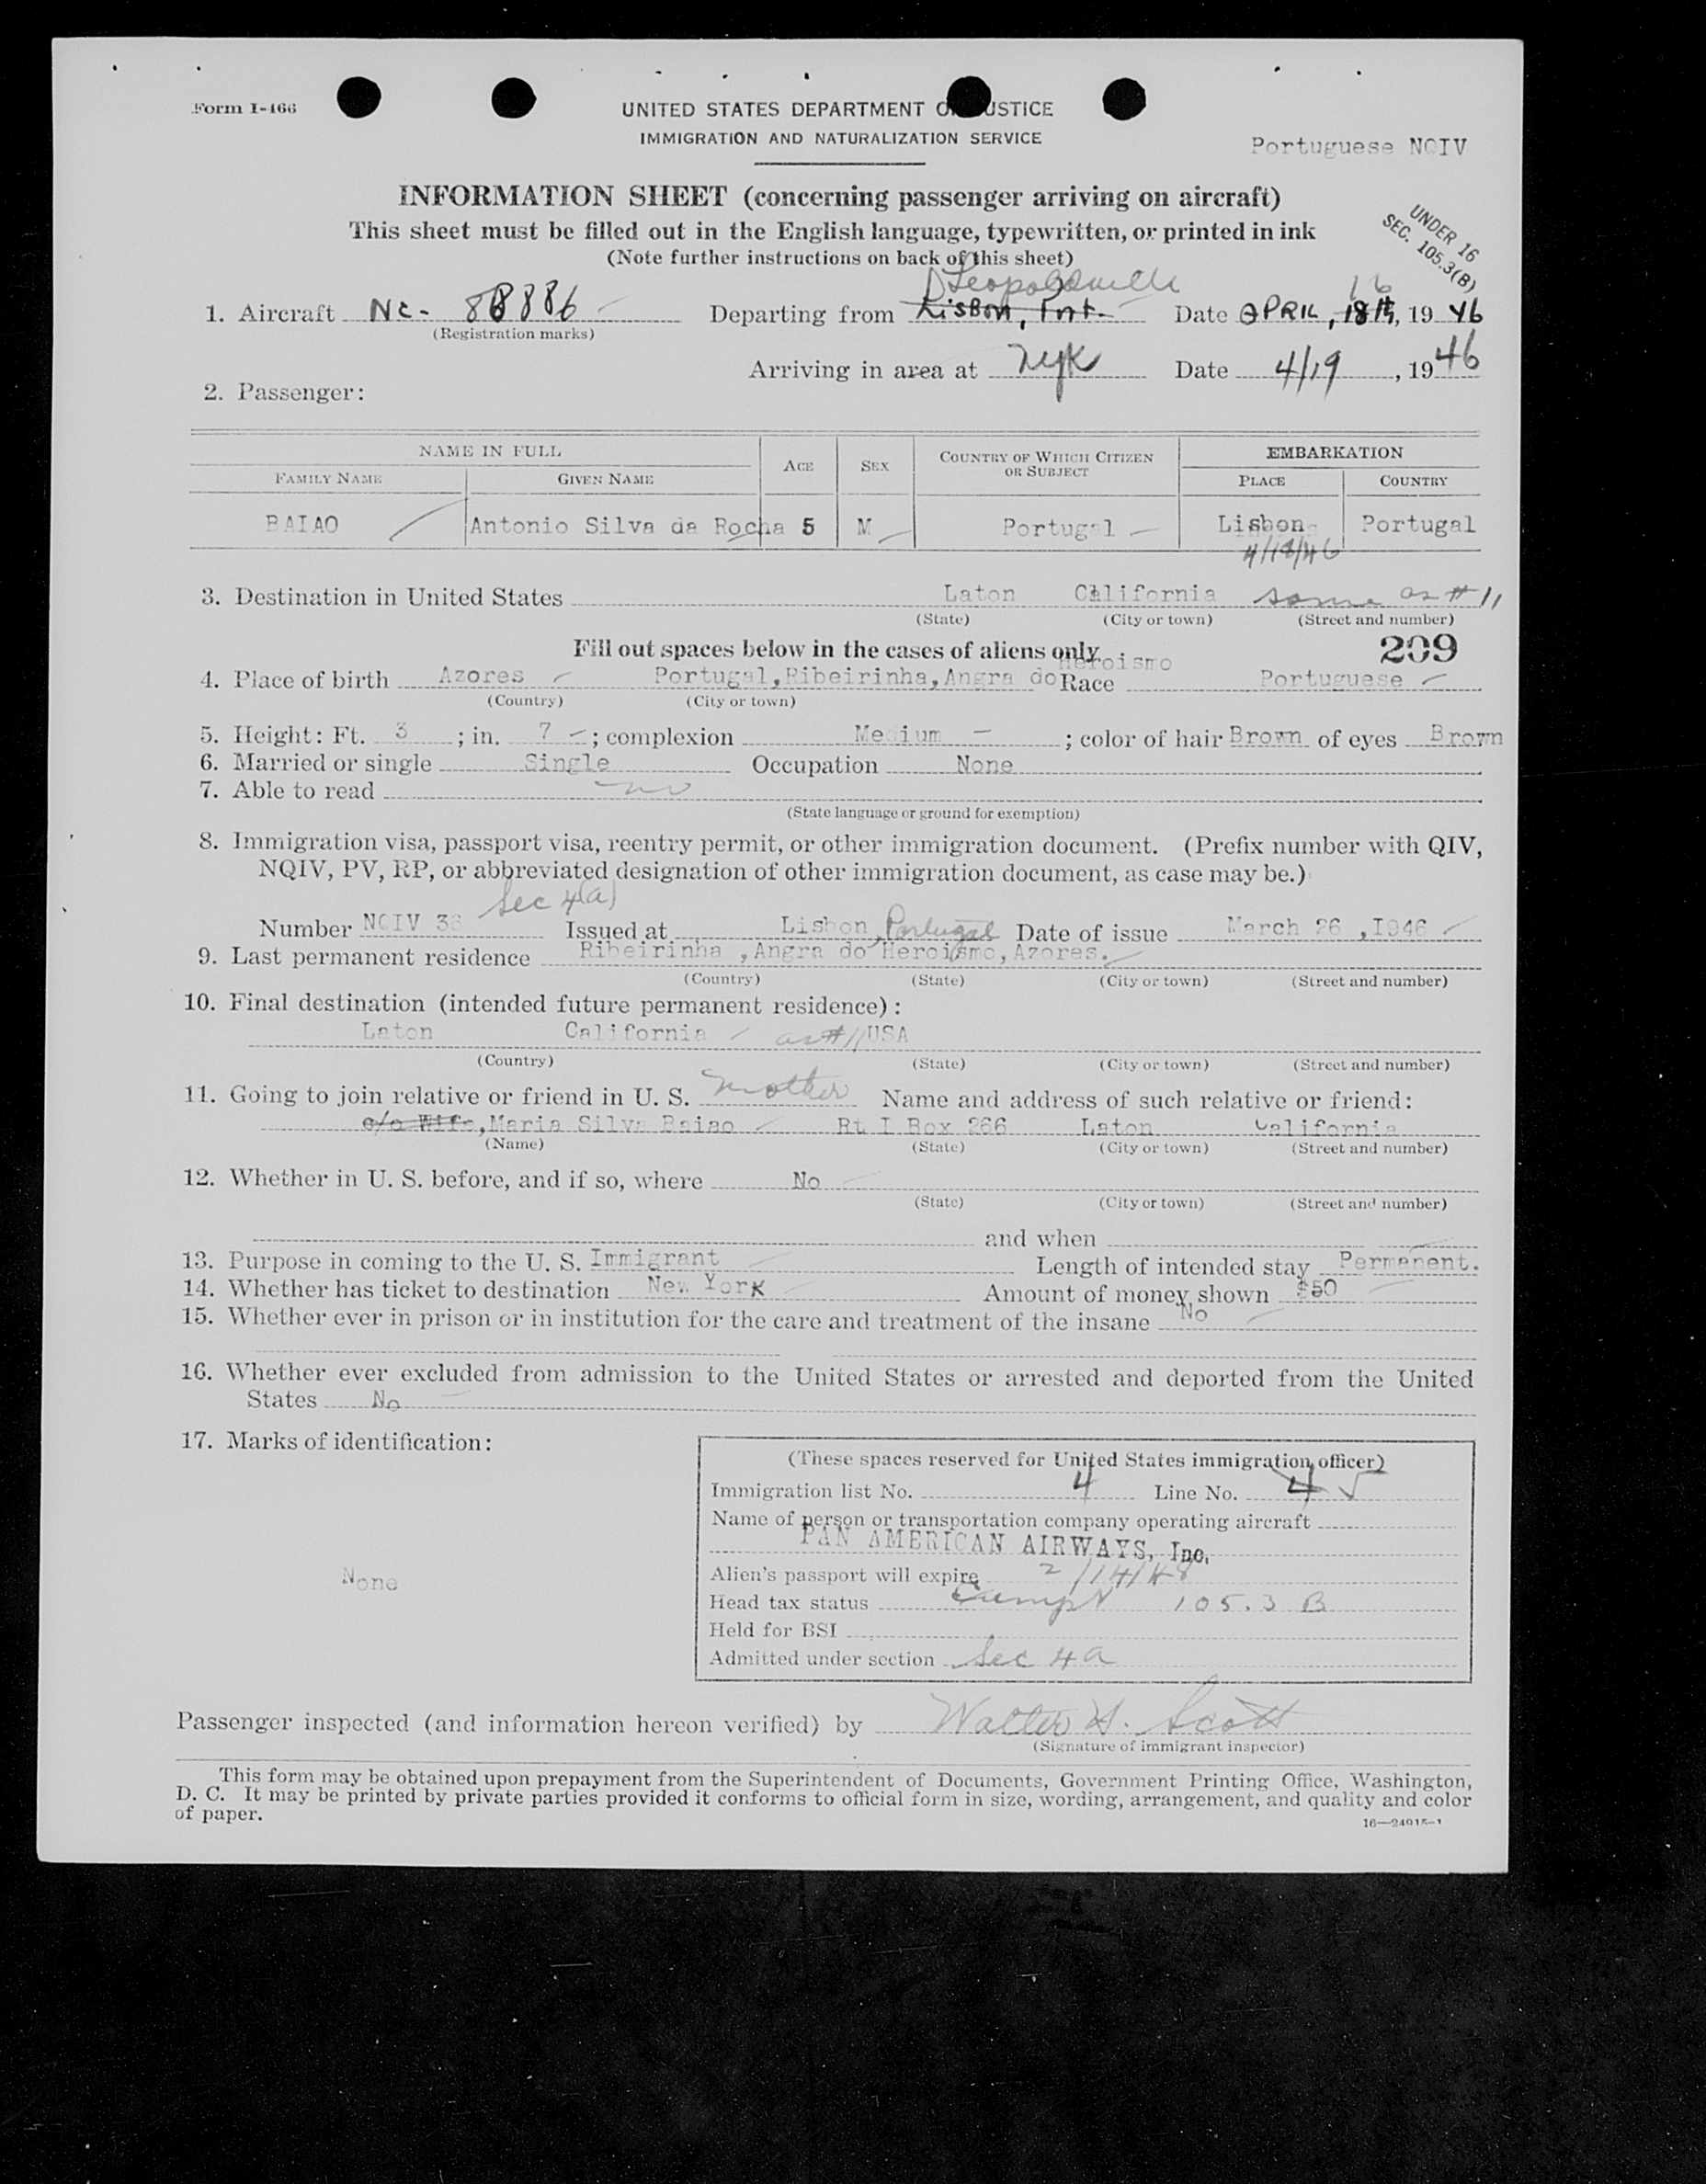 Form I-466
UNITED STATES DEPARTMENT OF JUSTICE
IMMIGRATION AND NATURALIZATION SERVICE
Portuguese NQIV
INFORMATION SHEET (concerning passenger arriving on aircraft)
This sheet must be filled out in the English language, typewritten, or printed in ink
(Note further instructions on back of this sheet)
UNDER 16
SEC. 105.3(B)
Leopoldville 16
1. Aircraft NC- 88886 Departing from Lisbon, Port. Date APRIL, 18th, 1946
(Registration marks)
Arriving in area at Nyk Date 4/19, 1946
2. Passenger:
NAME IN FULL AGE SEX COUNTRY OF WHICH CITIZEN OR SUBJECT EMBARKATION
FAMILY NAME GIVEN NAME PLACE COUNTRY
BAIAO Antonio Silva da Rocha 5 M Portugal Lisbon Portugal
4/18/46
3. Destination in United States Laton California same as # 11
(State) (City or town) (Street and number)
Fill out spaces below in the cases of aliens only 209
Heroismo
4. Place of birth Azores Portugal, Ribeirinha, Angra do Race Portuguese
(Country) (City or town)
5. Height: Ft. 3; in. 7; complexion Medium; color of hair Brown of eyes Brown
6. Married or single Single Occupation None
7. Able to read no
(State language or ground for exemption)
8. Immigration visa, passport visa, reentry permit, or other immigration document. (Prefix number with QIV,
NQIV, PV, RP, or abbreviated designation of other immigration document, as case may be.)
Sec 4(a)
Number NQIV 38 Issued at Lisbon, Portugal Date of issue March 26, I946
9. Last permanent residence Ribeirinha, Angra do Heroismo, Azores.
(Country) (State) (City or town) (Street and number)
10. Final destination (intended future permanent residence):
Laton California as # 11 USA
(Country) (State) (City or town) (Street and number)
11. Going to join relative or friend in U. S. mother Name and address of such relative or friend:
c/o Wife, Maria Silva Baiao Rt I Box 266 Laton California
(Name) (State) (City or town) (Street and number)
12. Whether in U. S. before, and if so, where No
(State) (City or town) (Street and number)
and when
13. Purpose in coming to the U. S. Immigrant Length of intended stay Permanent.
14. Whether has ticket to destination New York Amount of money shown $50
15. Whether ever in prison or in institution for the care and treatment of the insane No
16. Whether ever excluded from admission to the United States or arrested and deported from the United
States No
17. Marks of identification:
None
(These spaces reserved for United States immigration officer)
Immigration list No. 4 Line No. 4 5
Name of person or transportation company operating aircraft
PAN AMERICAN AIRWAYS, Inc.
Alien's passport will expire 2/14/48
Head tax status Exempt 105.3 B
Held for BSI
Admitted under section Sec 4a
Passenger inspected (and information hereon verified) by Walter H. Scott
(Signature of immigrant inspector)
This form may be obtained upon prepayment from the Superintendent of Documents, Government Printing Office, Washington,
D. C. It may be printed by private parties provided it conforms to official form in size, wording, arrangement, and quality and color
of paper.
16—24915-1